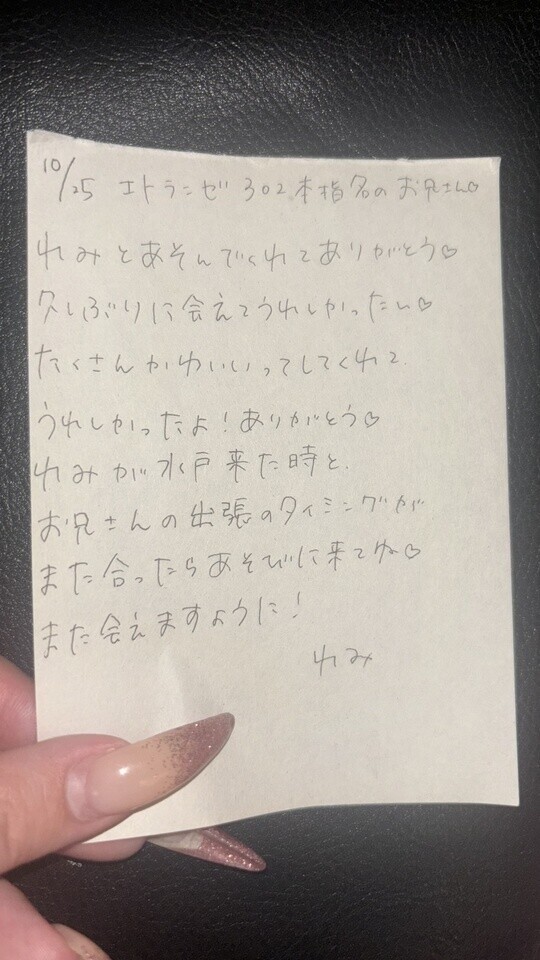 10/25 エトランゼ302本指名のお兄さん♡
れみとあそんでくれてありがとう♡
久しぶりに会えてうれしかったい♡
たくさんかわいいってしてくれて、
うれしかったよ！ありがとう♡
れみが水戸来た時と、
お兄さんの出張のタイミングが
また合ったらあそびに来てね♡
また会えますように！
れみ